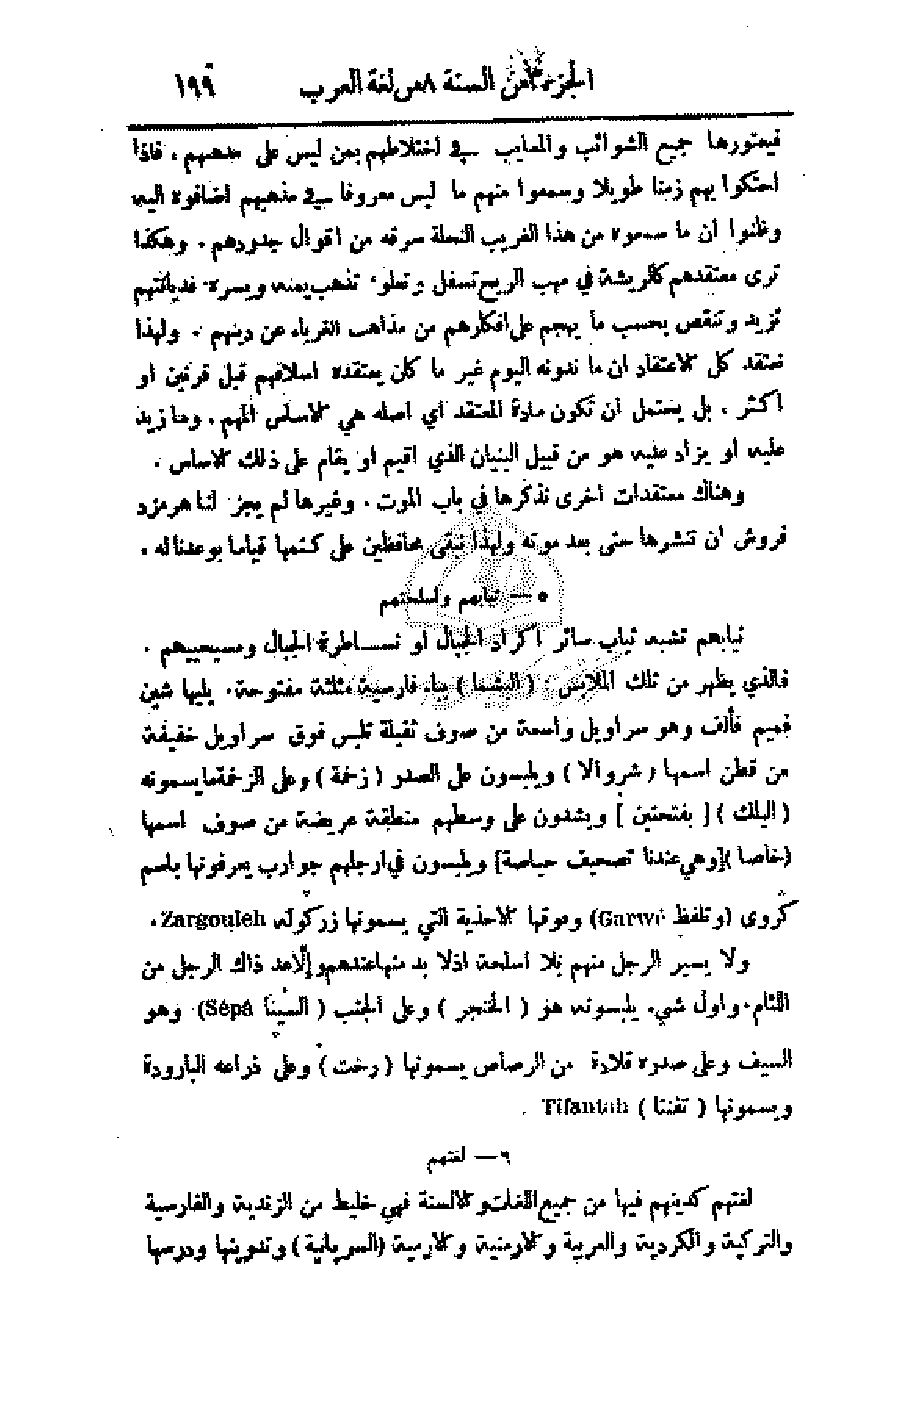 الجزء ٣ من السنة ٨ من لغة العرب ١٩٩
فيعتورها جميع الشوائب والمعايب في اختلاطهم بمن ليس على مذهبهم. فاذا
احتكوا بهم زمنا طويلا وسمعوا منهم ما ليس معروفا في مذهبهم اضافوه اليه
وظنوا ان ما سمعوه من هذا الغريب النحلة سرقه من اقوال جدودهم. وهكذا
ترى معتقدهم كالريشة في مهب الريح تسفل وتعلو، تذهب يمنة ويسرة فديانتهم
تزيد وتنقص بحسب ما يهجم على افكارهم من مذاهب الغرباء عن دينهم. ولهذا
نعتقد كل الاعتقاد ان ما ندونه اليوم غير ما كان يعتقده اسلافهم قبل قرنين او
اكثر. بل يحتمل ان تكون مادة المعتقد اي اصله هي الاساس المهم. وما زيد
عليه او يزاد عليه هو من قبيل البنيان الذي اقيم او يقام على ذلك الاساس.
وهناك معتقدات اخرى نذكرها في باب الموت. وغيرها لم يجز لنا هرمزد
فروش ان ننشرها حتى بعد موته ولهذا نبقى محافظين على كتمها قياما بوعدنا له.
٥ — ثيابهم واسلحتهم
ثيابهم تشبه ثياب سائر اكراد الجبال او نساطرة الجبال ومسيحييهم.
فالذي يظهر من تلك الملابس: (الپشما) بباء فارسية مثلثة مفتوحة. يليها شين
فميم فألف وهو سراويل واسعة من صوف ثقيلة تلبس فوق سراويل خفيفة
من قطن اسمها (شروالا) ويلبسون على الصدر (زخمة) وعلى الزخمة ما يسمونه
(اليلك) [بفتحتين] ويشدون على وسطهم منطقة عريضة من صوف اسمها
(خاصا) [وهي عندنا تصحيف حياصة] ويلبسون في ارجلهم جوارب يعرفونها باسم
كروى (وتلفظ Garwé) وفوقها الاحذية التي يسمونها زركوله Zargouleh.
ولا يسير الرجل منهم بلا اسلحة اذ لا بد منها عندهم والا عد ذاك الرجل من
اللئام. واول شيء يلبسونه هو (الخنجر) وعلى الجنب (السيپا Sépâ) وهو
السيف وعلى صدره قلادة من الرصاص يسمونها (رخت) وعلى ذراعه البارودة
ويسمونها (تفنتا) Tifantah.
٦ — لغتهم
لغتهم كدينهم فيها من جميع اللغات والالسنة فهي خليط من الزندية والفارسية
والتركية والكردية والعربية والارمنية والارمية (السريانية) وتدوينها ودرسها